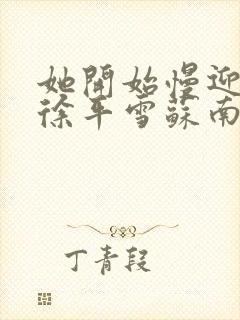 她開始慢迎
徐年雪蘇南
丁青段